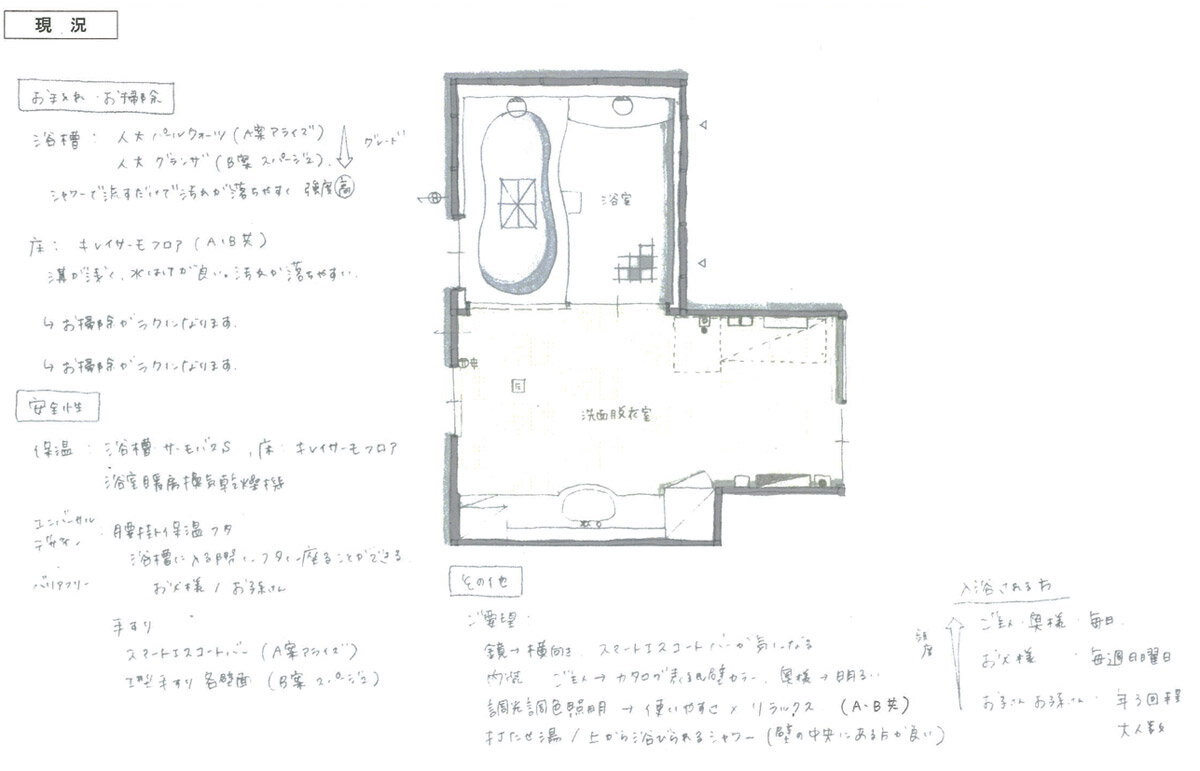 現況
お手入れ・お掃除
浴槽： 人大パールクォーツ（A案アライズ）
人大グランザ（B案スパージュ）
グレード
シャワーで流すだけで汚れが落ちやすく 強度高
床： キレイサーモフロア（A・B共）
溝が浅く、水はけが良い。汚れが落ちやすい。
↳お掃除がラクになります。
↳お掃除がラクになります。
安全性
保温：浴槽・サーモバスS、床：キレイサーモフロア
浴室暖房換気乾燥機
ユニバーサルデザイン・腰掛け保温フタ
浴槽に入る際に、フタに座ることができる
バリアフリー お父様／お孫さん
手すり
スマートエスコートバー（A案アライズ）
I型手すり各壁面（B案スパージュ）
浴室
洗面脱衣室
その他
ご要望・
鏡→横向き スマートエスコートバーが気になる
内装 ご主人→カタログ表紙壁カラー、奥様→明るい
調光調色照明→使いやすさ×リラックス （A・B共）
打たせ湯／上から浴びられるシャワー（壁の中央にある方が良い）
入浴される方
頻度
ご主人・奥様・毎日
お父様 ・毎週日曜日
お子さんお孫さん・年3回程
大人数